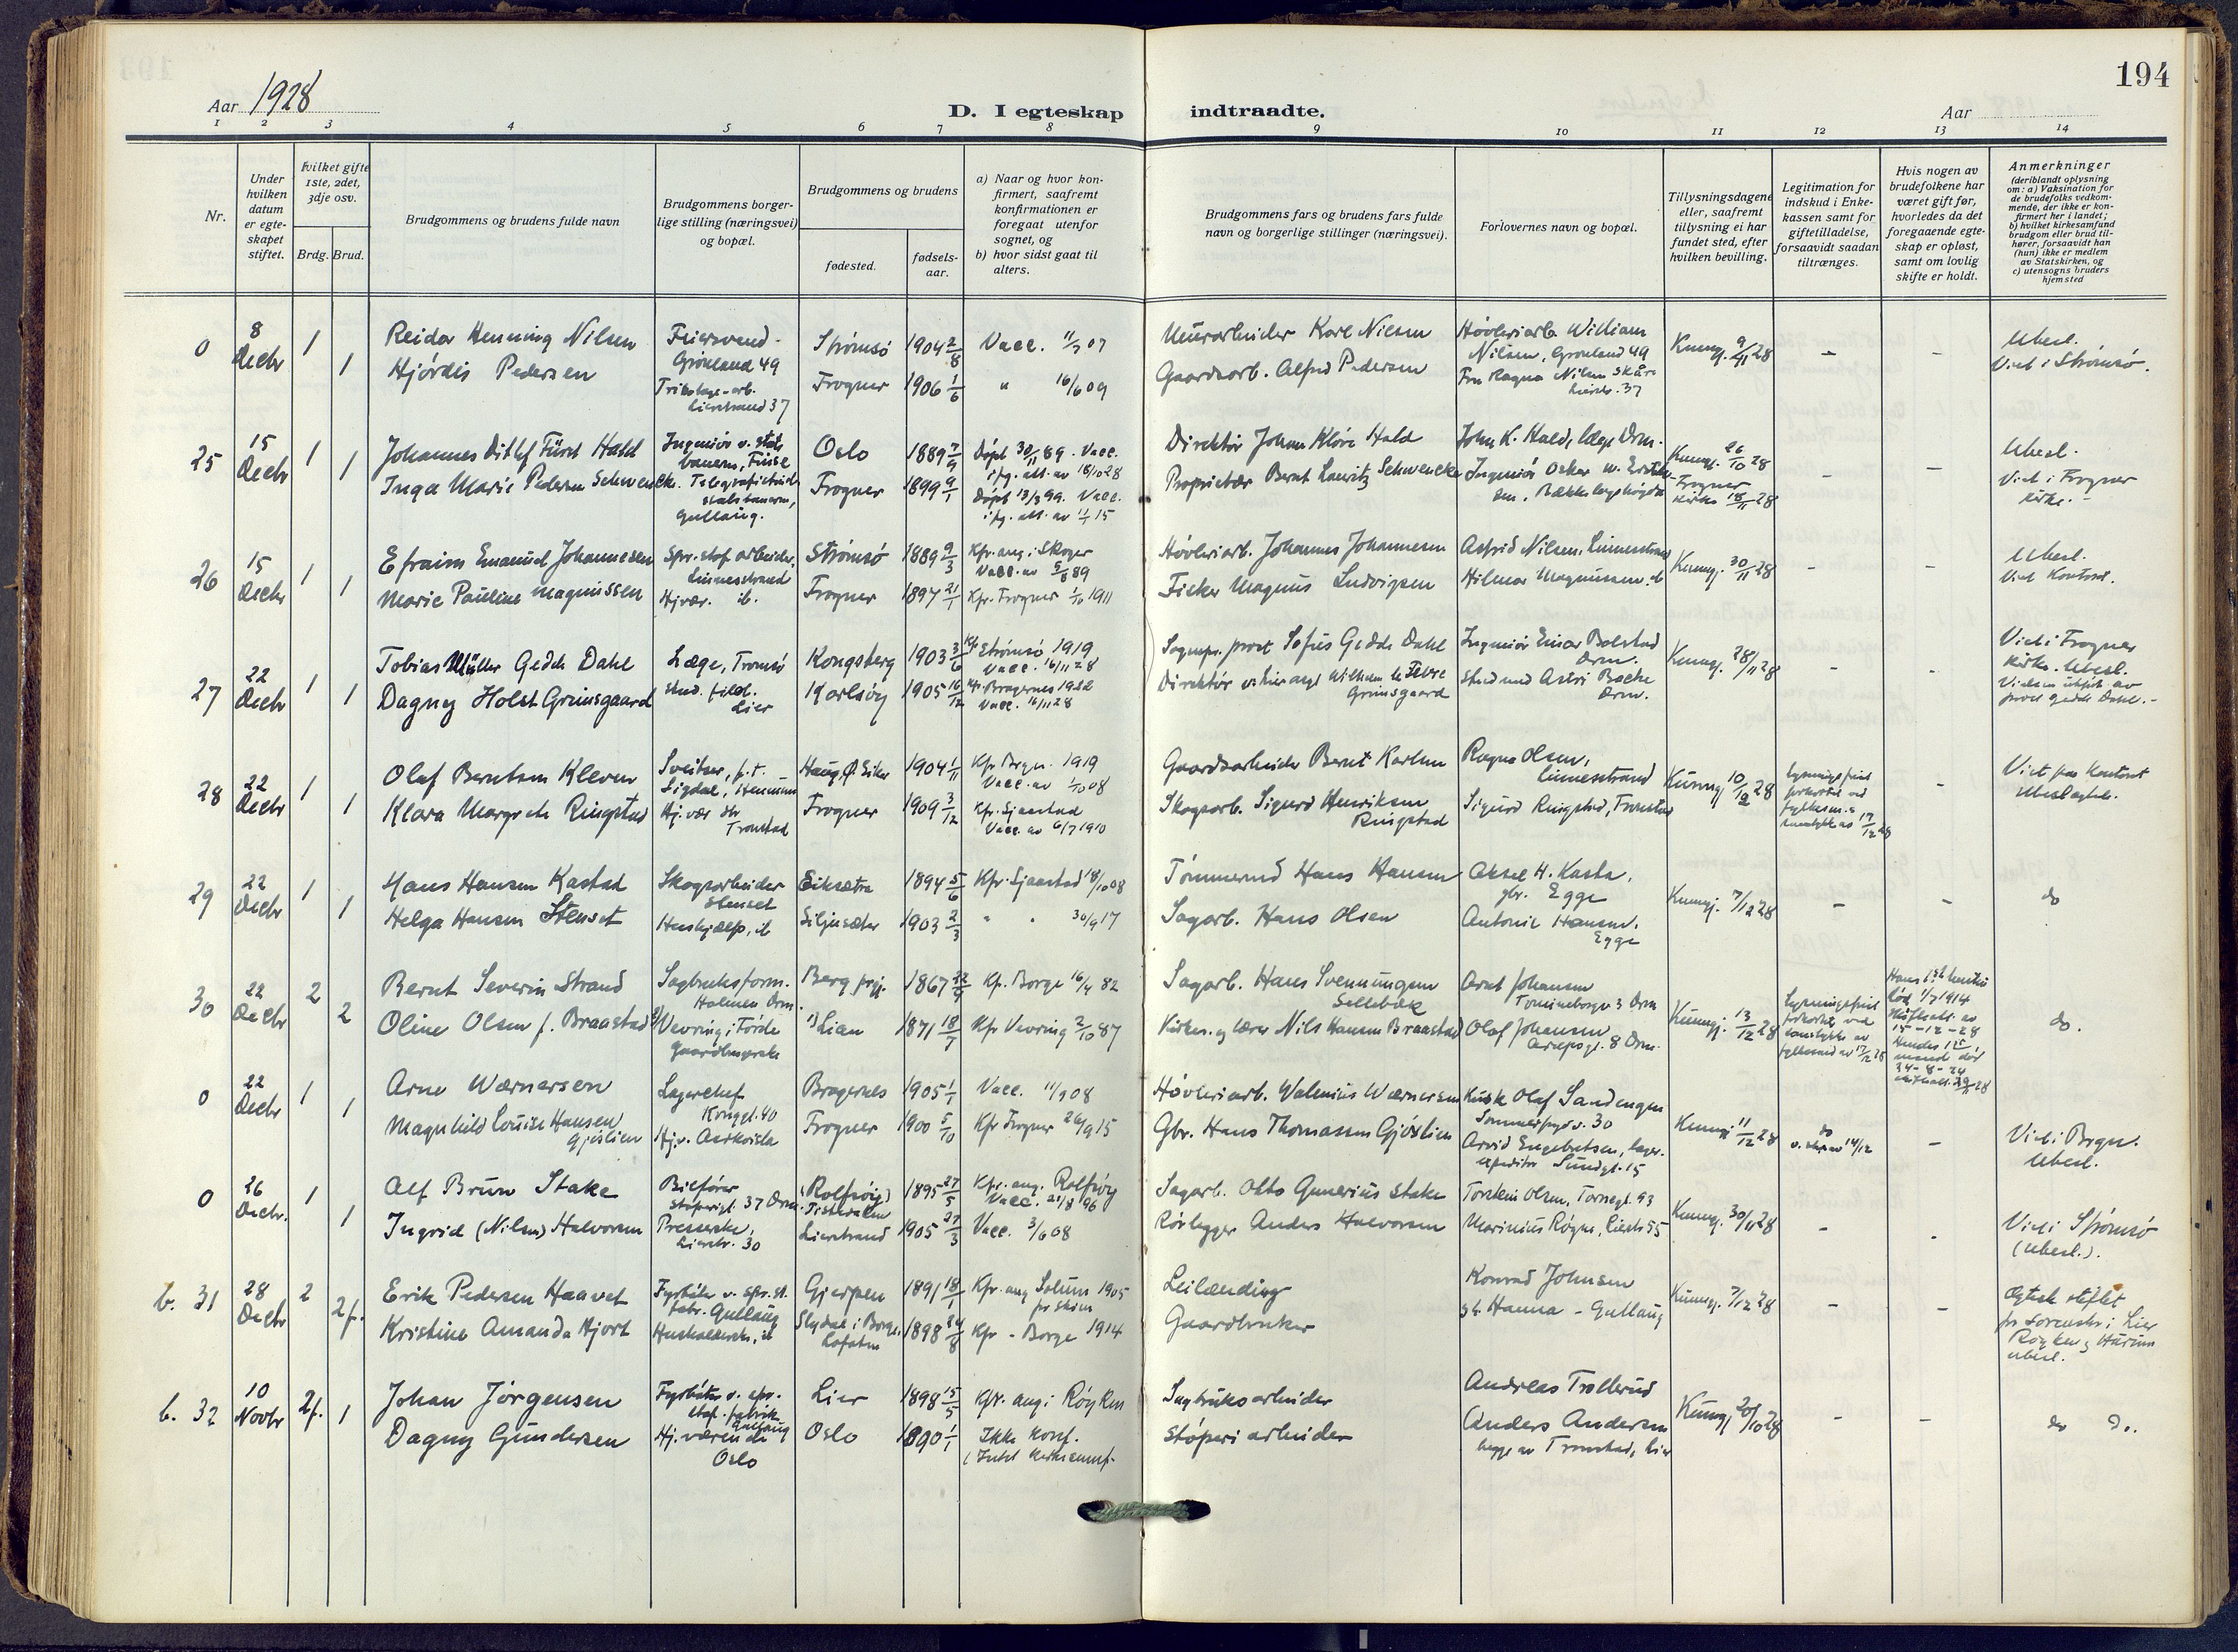 194
Aar 1928
D. I egteskap indtraadte.
Aar
1 2 3 4 5 6 7 8 9 10 11 12 13 14
Nr.
Under hvilken datum er egte-skapet stiftet.
Hvilket gifte 1ste, 2det, 3dje osv.
Brdg. Brud.
Brudgommens og brudens fulde navn
Brudgommens borger-
lige stilling (næringsvei)
og bopæl.
Brudgommens og brudens
fødested.
fødsels-
aar.
a) Naar og hvor kon-
firmert, saafremt
konfirmationen er
foregaat utenfor
sognet, og
b) hvor sidst gaat til
alters.
Brudgommens fars og brudens fars fulde
navn og borgerlige stillinger (næringsvei).
Forlovernes navn og bopæl.
Tillysningsdagene
eller, saafremt
tillysning ei har
fundet sted, efter
hvilken bevilling.
Legitimation for
indskud i Enke-
kassen samt for
giftetilladelse,
forsaavidt saadan
tiltrænges.
Hvis nogen av
brudefolkene har
været gift før,
hvorledes da det
foregaaende egte-
skap er opløst,
samt om lovlig
skifte er holdt.
Anmerkninger
(deriblandt oplysning
om: a) Vaksination for
de brudefolks vedkom-
mende, der ikke er kon-
firmert her i landet;
b) hvilket kirkesamfund
brudgom eller brud til-
hører, forsaavidt han
(hun) ikke er medlem
av Statskirken, og
c) utensogns bruders
hjemsted
0 8 Decbr 1 1
Reidar Henning Nilsen
Hjördis Pedersen
Grönland 49
Lierstrand 37
Strömsö 1904 2/8
Frogner 1906 1/6
Vacc. 11/9 07
" 16/6 09
Murarbeider Karl Nilsen
Gaardsarb. Alfred Pedersen
Høvleriarb. William
Nilsen, Grönland 49
Fru Ragna Nilsen
Kungj. 9/11 28
- -
Ubesl.
Viet i Strömsö.
25 15 Decbr 1 1
Johannes Ditlef Fürst Hald
Inga Marie Pedersen Schwencke
Ingeniör v. stats
banerne, Finse
Telegrafistinde
statsbanerne,
Gullaug.
Oslo 1889 7/9
Frogner 1899 9/1
Döpt 30/11 89. Vacc.
ifg. att. av 18/10 28
Döpt 13/3 99. Vacc.
ifg. att. av 11/1 15
Direktör Johan Klöve Hald
Proprietær Bernt Lauritz Schwencke
John K. Hald, læge Drm.
Ingeniör Oskar W.
Kungj. 26/10 28
Frogner
kirke 18/11 28
- -
Ubesl.
Viet i Frogner
kirke. -
26 15 Decbr 1 1
Efraim Emanuel Johannesen
Marie Pauline Magnussen
Spr. stof arbeider,
Linnesstrand
Hj.vær. ib.
Strömsö 1889 9/3
Frogner 1897 21/1
Kfr. ang. i Skoger
Vacc. av 5/8 89
Kfr. Frogner 1/10 1911
Høvleriarb. Johannes Johannesen
Fisker Magnus Ludvigsen
Astrid Nilsen, Linnesstrand
Hilmar Magnussen, ib
Kungj. 30/11 28
- -
Ubesl.
Viet Kontoret.
27 22 Decbr 1 1
Tobias Müller Gedde Dahl
Dagny Holst Grimsgaard
Læge, Tromsö
stud. filol.
Lier
Kongsberg 1903 3/6
Karlsöy 1905 16/12
Kfr. Strömsö 1919
Vacc. 16/11 28
Kfr. Bragernes 1922
Vacc. 16/11 28
Sognepr. prost Sofus Gedde Dahl
Direktör v. Lier asyl Wilhelm le Febre
Grimsgaard
Ingeniör Einar Bolstad
Drm.
stud med Astri Bache
Drm.
Kungj. 28/11 28
- -
Viet i Frogner
kirke. Ubesl.
Vielsen utfört av
prost Gedde Dahl. -
28 22 Decbr 1 1
Olaf Berntsen Kleven
Klara Margrete Ringstad
Sveitser, p.t.
Sigdal,
Hj. vær. dtr
Tronstad
Haug, Ø. Eiker 1904 1/11
Frogner 1909 3/12
Kfr. Brgn. 1919
Vacc. av 1/10 08
Kfr. Sjaastad
Vacc. av 6/7 1910
Gaardsarbeider Bernt Karlsen
Skogsarb. Sigurd Henriksen
Ringstad
Ragna Olsen,
Linnesstrand
Sigurd Ringstad, Tronstad
Kungj. 10/12 28
Lysningsfrist
forkortet ved
fylkesm.s
samtykke av 17/12 28
-
Viet paa Kontoret
Ubeslegtede.
29 22 Decbr 1 1
Hans Hansen Kastad
Helga Hansen Stenset
Skogsarbeider
Stenset
Hushjælp, ib
Eiksetra 1894 5/6
Siljusæter 1903 2/3
Kfr. Sjaastad 18/10 08
" " 30/9 17
Tömmermd Hans Hansen
Sagarb. Hans Olsen
Aksel H. Kasta,
gbr. Egge
Antonie Hansen,
Egge
Kungj. 7/12 28
- -
do
30 22 Decbr 2 2
Bernt Severin Strand
Oline Olsen f. Braastad
Sagbruksform.
Holmen Drm.
Vevring i Förde
Gaardbrukerske
Berg prgj. 1867 22/9
Lian 1871 18/7
Kf. Borge 16/4 82
Kfr Vevring 2/10 87
Sagarb. Hans Svenningsen
Sellebæk
Kirkes. og lærer Nils Hansen Braastad
Arnt Johansen
Tomineborgv. 3 Drm
Olaf Johansen
8 Drm.
Kungj. 13/12 28
Lysningsfrist
forkortet ved
samtykke av
fylkesmd av 17/12 28
Hans 1st hustru
död 1/7 1914
skifteatt. av
15-12-28
Hendes 1st
mand död
24-8-24
do.
0 22 Decbr 1 1
Arne Wærnersen
Magnhild Louise Hansen
Gjöslien
Lagerchef
Kongsgt. 40
Hj.v. Aarkvisla
Bragernes 1905 1/1
Frogner 1900 5/10
Vacc. 11/9 08
Kfr Frogner 26/9 15
Høvleriarb. Valenius Wærnersen
Gbr. Hans Thomassen Gjöslien
Kusk Olaf Sandengen
Sommerfrydv. 30
Arvid Engebretsen, lager-
expeditör Sundgt. 15
Kungj. 11/12 28
do
-
Viet i Brgn.
Ubesl.
0 26 Decbr. 1 1
Alf Brun Stake
Ingrid (Nilsen) Halvorsen
Bilförer
Störperigt. 37 Drm.
Presserske,
Lierstr. 30
(Rolfsöy)
Tistedalen 1895 27/5
Lierstrand 1905 27/3
Kfr. ang. Rolfsöy
Vacc. 21/8 96
Vacc. 3/6 08
Sagarb. Otto Gunerius Stake
Rörlegger Anders Halvorsen
Torstein Olsen, Tornegt. 93
Marinius Rögne, Lierstr 55
Kungj. 30/11 28
- -
Viet i Strömsö
(Ubesl.).
b. 31 28 Decbr 2 2f.
Erik Pedersen Haavet
Kristine Amanda Hjort
Fyrböter v. spr. st.
fabr. Gullaug
Husholderske, ib
Gjerpen 1891 18/1
Slydal i Borge,
Lofoten 1898 24/8
Kfr. ang Solum 1905
pr Skien
Kfr - Borge 1914
Leilænding
Gaardbruker
Konrad Johnsen
st. Hanna - Gullaug
Kungj. 7/12 28
- -
Egtesk stiftet
fr sorenskr. i Lier
Röyken og Hurum
ubesl.
b. 32 10 Novbr 2f. 1
Johan Jörgensen
Dagny Gundersen
Fyrböter v. spr.
stof. fabrik
Gullaug
Hj. værende
Oslo
Lier 1898 15/5
Oslo 1890 1/1
Kfr. ang i Röyken
Ikke konf.
(Intet kirkesamf.
Sagbruksarbeider
Störperi arbeider
Andreas Trollerud
Anders Andersen
begge av Tronstad, Lier
Kungj. 20/10 28
- -
do do.